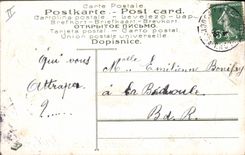 Carte Postale
Postkarte - Post card.
Cartolina postale - Levelezö-Lap
Brefkort - Briefkaart - Brevkort
ОТКРЫТОЕ ПИСЬМО
Tarjeta postal - Cartão postal
Union postale universelle
Dopisnice.
Qui vous
attrape
?
Mlle Emilienne
à la Bédoule
B d R.